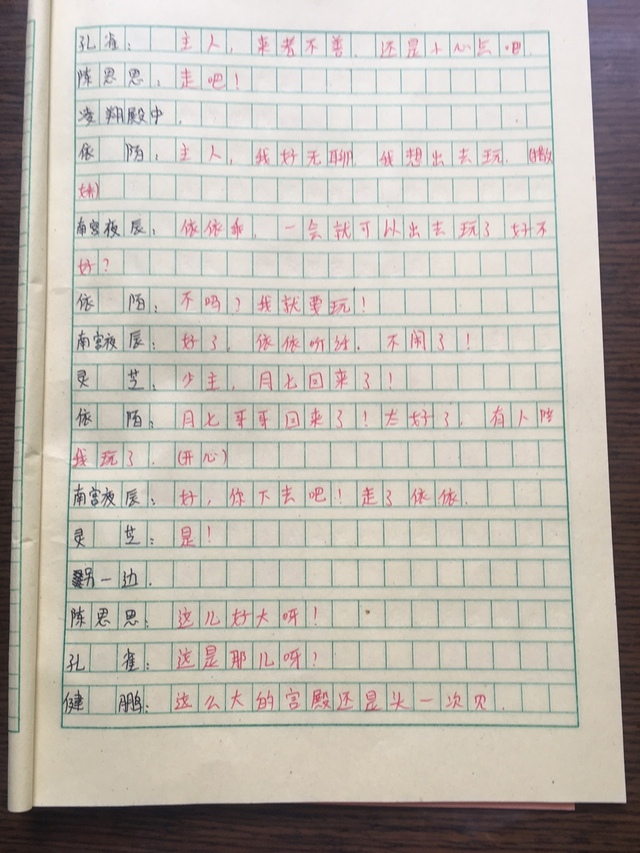 孔雀：主人，来者不善，还是小心点吧.
陈思思：走吧！
凌翔殿中.
依陌：主人，我好无聊 我想出去玩.（撒
娇）
南宫夜辰：依依乖，一会就可以出去玩了 好不
好？
依陌：不吗？我就要玩！
南宫夜辰：好了，依依听话，不闹了！
灵芝：少主，月七回来了！
依陌：月七哥哥回来了！太好了，有人陪
我玩了.（开心）
南宫夜辰：好，你下去吧！走了依依.
灵芝：是！
另一边.
陈思思：这儿好大呀！
孔雀：这是那儿呀？
健鹏：这么大的宫殿还是头一次见.